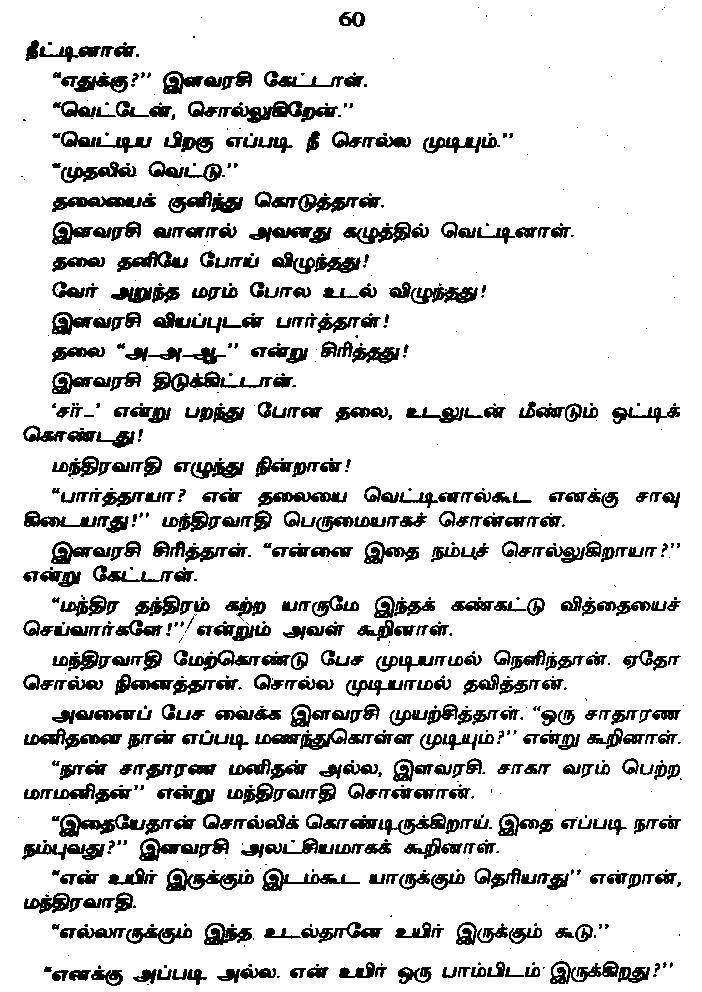 60
நீட்டினான்.
“எதுக்கு?” இளவரசி கேட்டாள்.
“வெட்டேன், சொல்லுகிறேன்.”
“வெட்டிய பிறகு எப்படி நீ சொல்ல முடியும்.”
“முதலில் வெட்டு.”
தலையைக் குனிந்து கொடுத்தான்.
இளவரசி வாளால் அவனது கழுத்தில் வெட்டினாள்.
தலை தனியே போய் விழுந்தது!
வேர் அறுந்த மரம் போல உடல் விழுந்தது!
இளவரசி வியப்புடன் பார்த்தாள்!
தலை “அ-அ-ஆ-” என்று சிரித்தது!
இளவரசி திடுக்கிட்டாள்.
‘சர்-’ என்று பறந்து போன தலை, உடலுடன் மீண்டும் ஒட்டிக்
கொண்டது!
மந்திரவாதி எழுந்து நின்றான்!
“பார்த்தாயா? என் தலையை வெட்டினால்கூட எனக்கு சாவு
கிடையாது!” மந்திரவாதி பெருமையாகச் சொன்னான்.
இளவரசி சிரித்தாள். “என்னை இதை நம்பச் சொல்லுகிறாயா?”
என்று கேட்டாள்.
“மந்திர தந்திரம் கற்ற யாருமே இந்தக் கண்கட்டு வித்தையைச்
செய்வார்களே!” என்றும் அவள் கூறினாள்.
மந்திரவாதி மேற்கொண்டு பேச முடியாமல் நெளிந்தான். ஏதோ
சொல்ல நினைத்தான். சொல்ல முடியாமல் தவித்தான்.
அவனைப் பேச வைக்க இளவரசி முயற்சித்தாள். “ஒரு சாதாரண
மனிதனை நான் எப்படி மணந்துகொள்ள முடியும்?” என்று கூறினாள்.
“நான் சாதாரண மனிதன் அல்ல, இளவரசி. சாகா வரம் பெற்ற
மாமனிதன்” என்று மந்திரவாதி சொன்னான்.
“இதையேதான் சொல்லிக் கொண்டிருக்கிறாய். இதை எப்படி நான்
நம்புவது?” இளவரசி அலட்சியமாகக் கூறினாள்.
“என் உயிர் இருக்கும் இடம்கூட யாருக்கும் தெரியாது” என்றான்,
மந்திரவாதி.
“எல்லாருக்கும் இந்த உடல்தானே உயிர் இருக்கும் கூடு.”
“எனக்கு அப்படி அல்ல. என் உயிர் ஒரு பாம்பிடம் இருக்கிறது?”